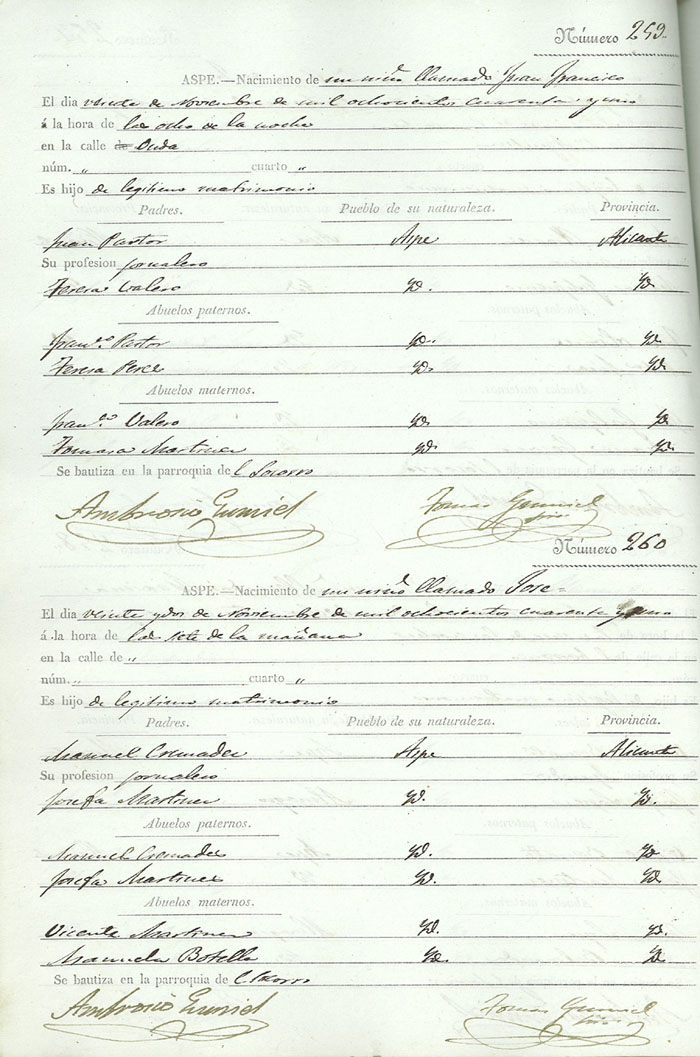 Número 259.
ASPE.—Nacimiento de un niño llamado Juan Francisco
El dia veinte de Noviembre de mil ochocientos cuarenta y uno
á la hora de las ocho de la noche
en la calle de Onda
núm. „ cuarto „
Es hijo de legitimo matrimonio
Padres. Pueblo de su naturaleza. Provincia.
Juan Pastor Aspe Alicante
Su profesion jornalero
Teresa Valero Yd. Yd.
Abuelos paternos.
Franco. Pastor Yd. Yd.
Teresa Perez Yd. Yd.
Abuelos maternos.
Franco. Valero Yd. Yd.
Tomasa Martinez Yd. Yd.
Se bautiza en la parroquia de l Socorro
Ambrosio Gumiel Tomas Gumiel
Número 260
ASPE.—Nacimiento de un niño llamado Jose=
El dia veinte y dos de Noviembre de mil ochocientos cuarenta y uno
á la hora de las siete de la mañana
en la calle de „
núm. „ cuarto „
Es hijo de legitimo matrimonio
Padres. Pueblo de su naturaleza. Provincia.
Manuel Cremades Aspe Alicante
Su profesion jornalero
Josefa Martinez Yd. Yd.
Abuelos paternos.
Manuel Cremades Yd. Yd.
Josefa Martinez Yd. Yd.
Abuelos maternos.
Vicente Martinez Yd. Yd.
Manuela Botella Yd. Yd.
Se bautiza en la parroquia de l Socorro
Ambrosio Gumiel Tomas Gumiel